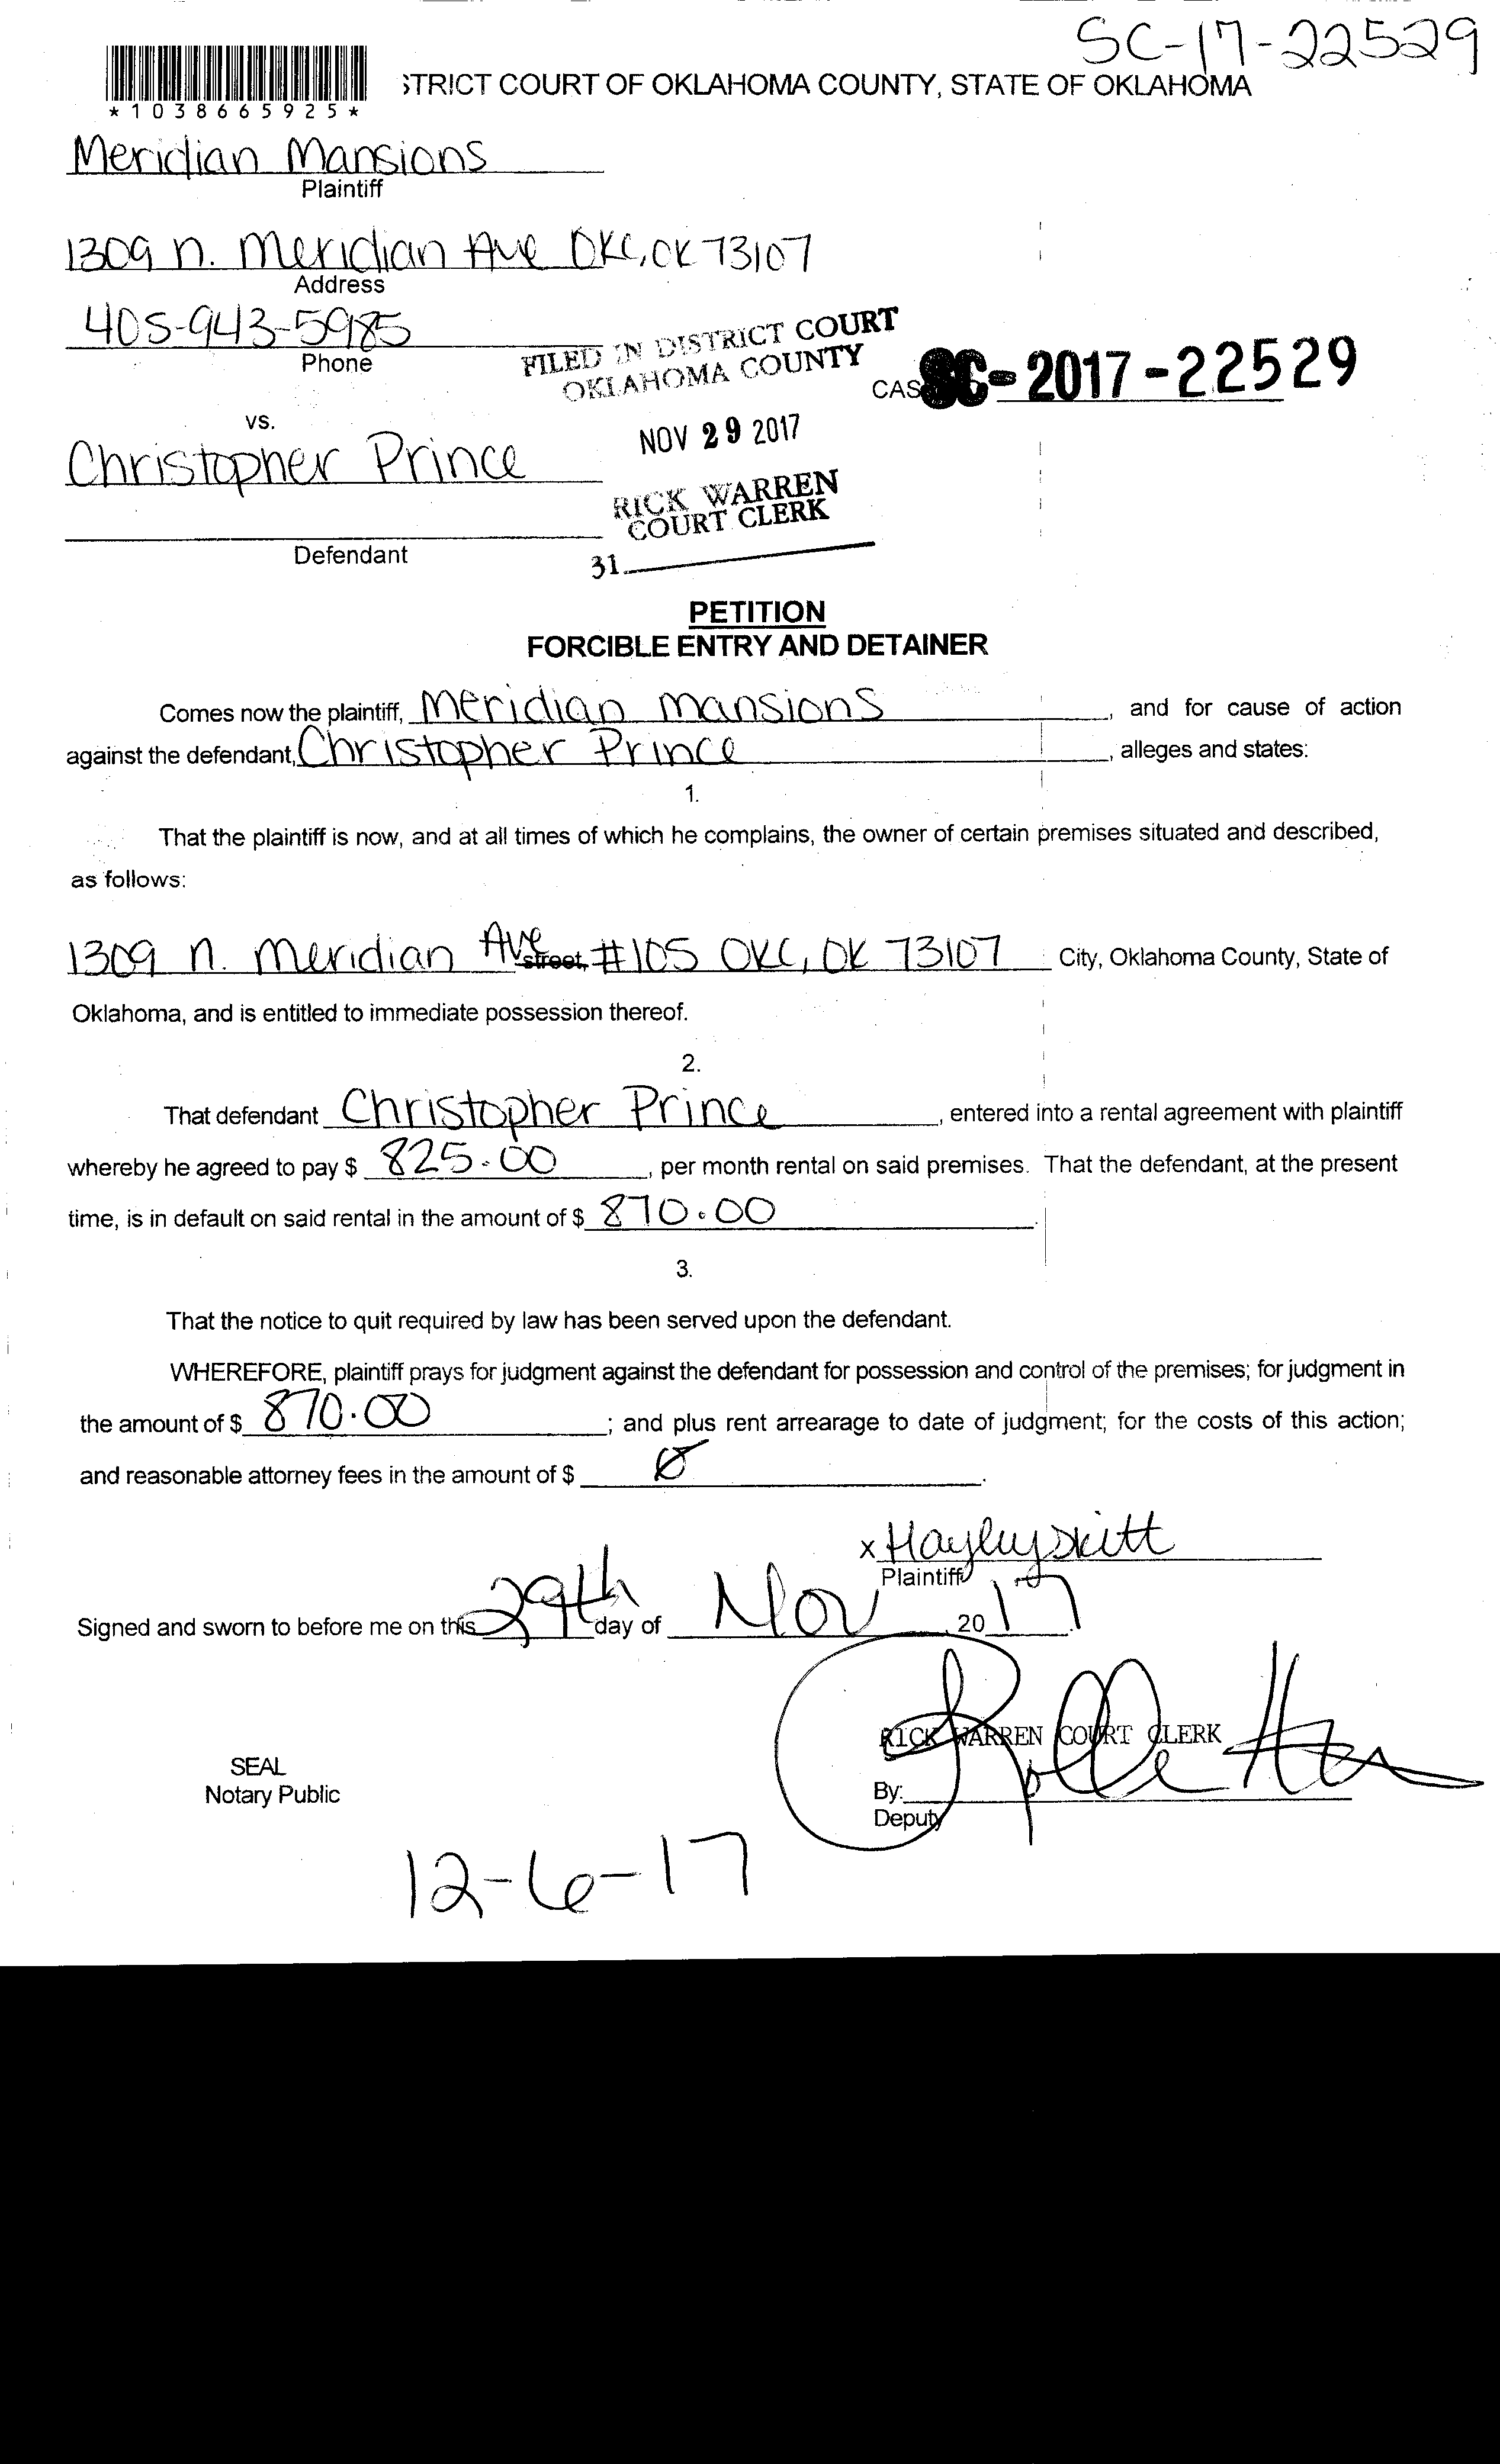 SC-17-22529
STRICT COURT OF OKLAHOMA COUNTY, STATE OF OKLAHOMA
*1038665925*
Meridian Mansions
Plaintiff
1309 N. Meridian Ave OKC, OK 73107
Address
405-943-5985
Phone
FILED IN DISTRICT COURT
OKLAHOMA COUNTY
CAS SC-2017-22529
vs.
NOV 29 2017
Christopher Prince
RICK WARREN
COURT CLERK
Defendant
31
PETITION
FORCIBLE ENTRY AND DETAINER
Comes now the plaintiff, Meridian Mansions, and for cause of action
against the defendant, Christopher Prince, alleges and states:
1.
That the plaintiff is now, and at all times of which he complains, the owner of certain premises situated and described,
as follows:
1309 N. Meridian Ave street, #105 OKC, OK 73107 City, Oklahoma County, State of
Oklahoma, and is entitled to immediate possession thereof.
2.
That defendant Christopher Prince, entered into a rental agreement with plaintiff
whereby he agreed to pay $ 825.00, per month rental on said premises. That the defendant, at the present
time, is in default on said rental in the amount of $ 870.00.
3.
That the notice to quit required by law has been served upon the defendant.
WHEREFORE, plaintiff prays for judgment against the defendant for possession and control of the premises; for judgment in
the amount of $ 870.00; and plus rent arrearage to date of judgment; for the costs of this action;
and reasonable attorney fees in the amount of $ 0.
x Hayley
Plaintiff
Signed and sworn to before me on this 29th day of Nov, 2017.
RICK WARREN COURT CLERK
SEAL
Notary Public
By:
Deputy
12-6-17